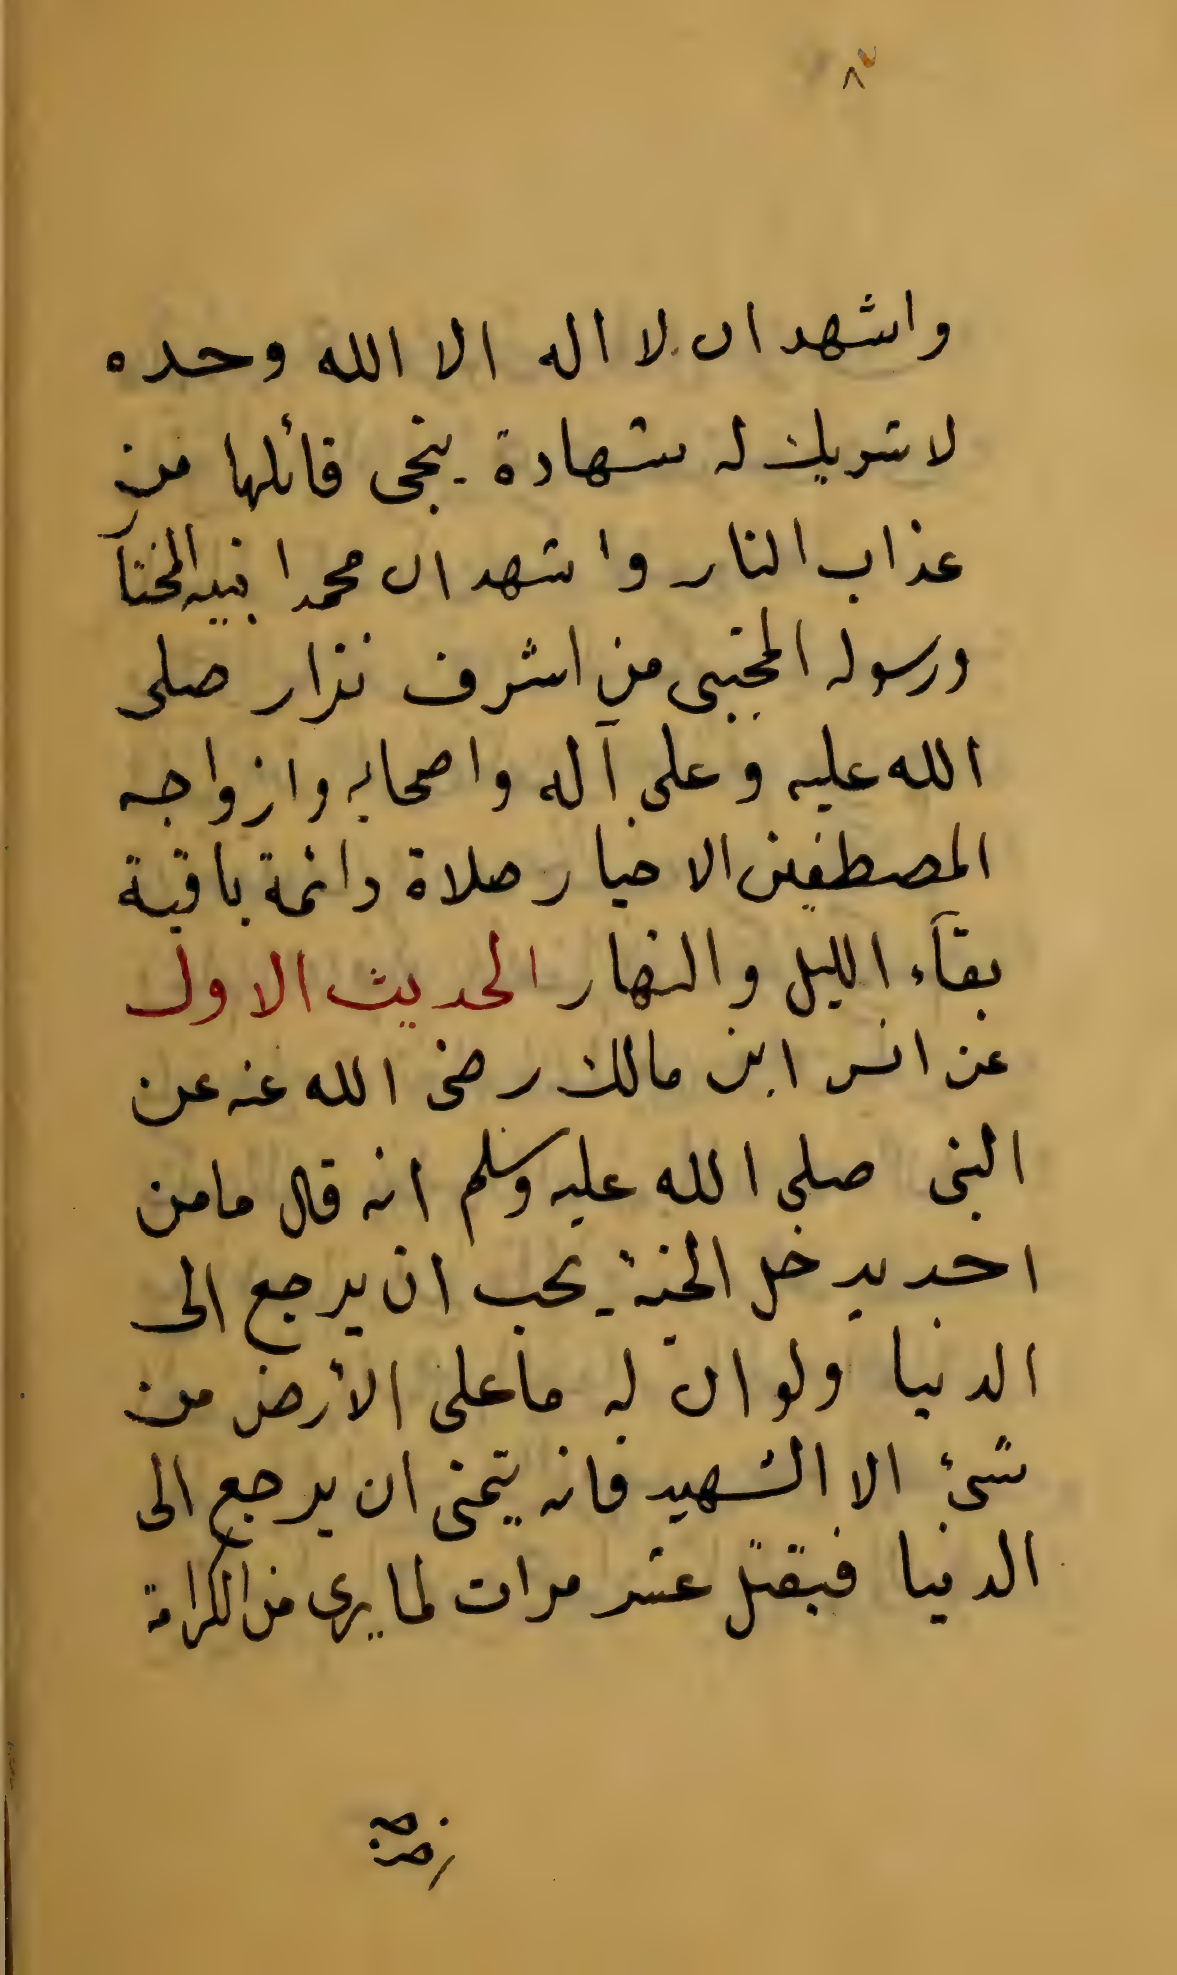 ٨
واشهد ان لا اله الا الله وحده
لا شريك له شهادة ينجى قائلها من
عذاب النار واشهد ان محمدا نبيه المختار
ورسوله المجتبى من اشرف نزار صلى
الله عليه وعلى آله واصحابه وازواجه
المصطفين الاخيار صلاة دائمة باقية
بقآء الليل والنهار الحديث الاول
عن انس ابن مالك رضى الله عنه عن
النبى صلى الله عليه وسلم انه قال مامن
احد يدخل الجنة يحب ان يرجع الى
الدنيا ولو ان له ماعلى الأرض من
شئ الا الشهيد فانه يتمنى ان يرجع الى
الدنيا فيقتل عشر مرات لما يرى من الكرامة